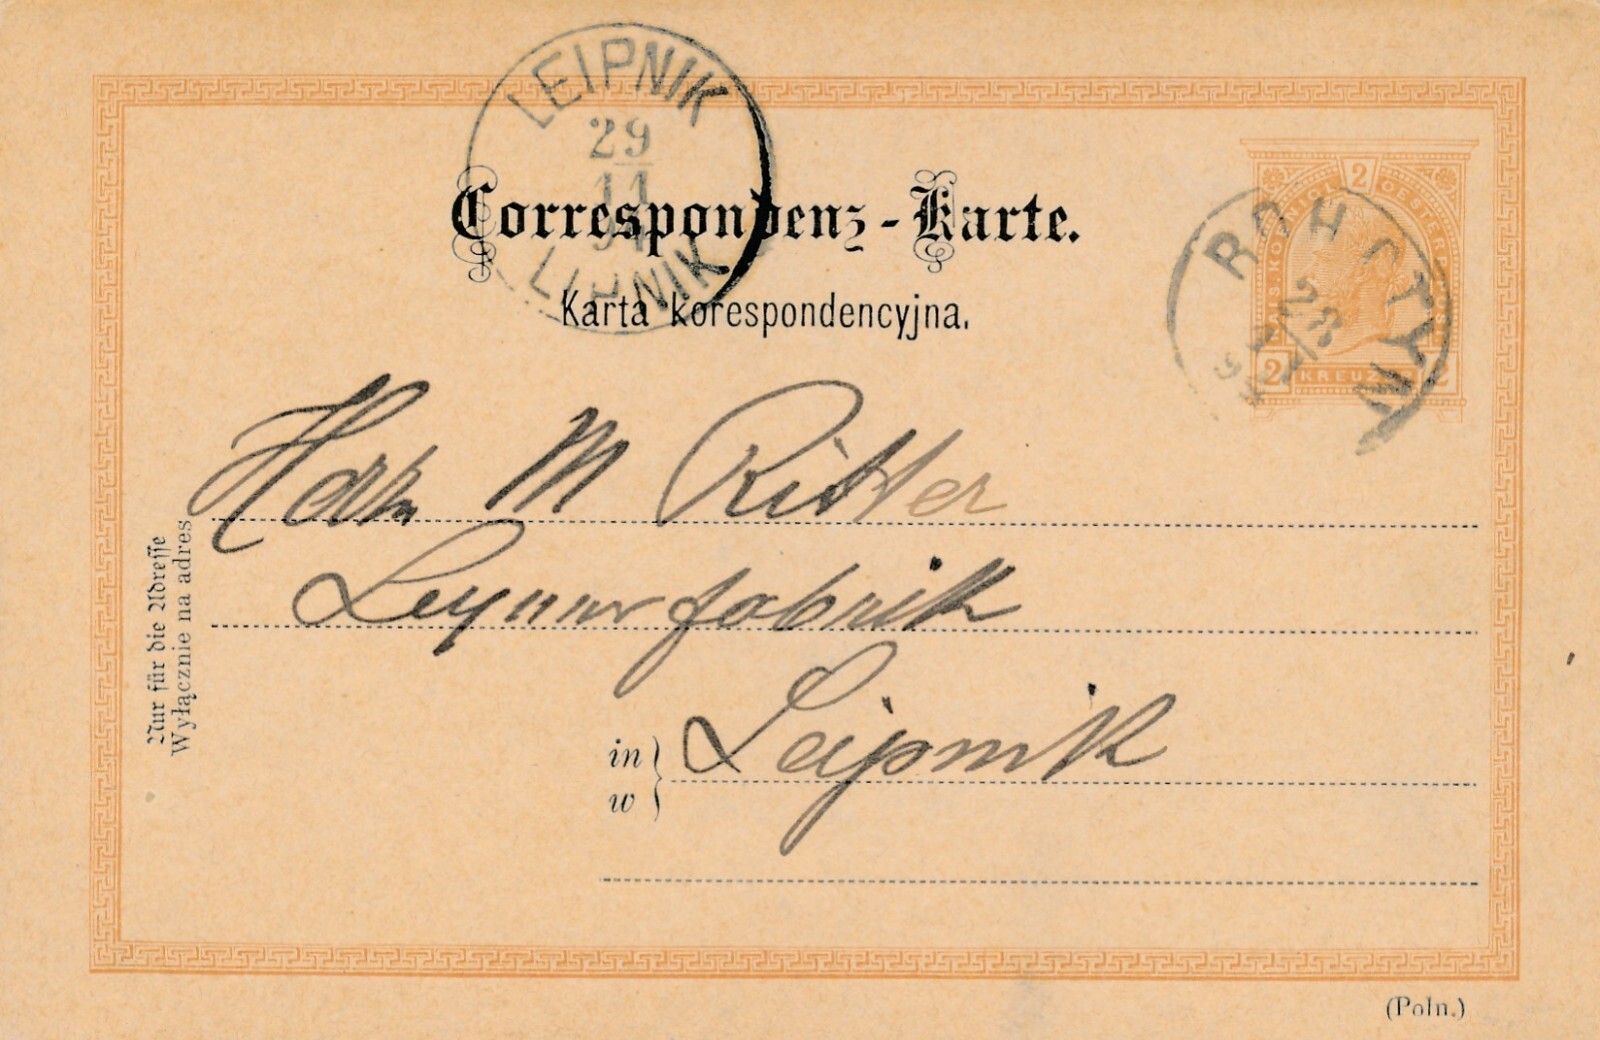 LEIPNIK
29
11
LIPNIK
Correspondenz-Karte.
Karta korespondencyjna.
2
KÖNIGL. OESTERR.
2 KREUZER 2
ROHATYN
28
11
Herrn M Ritter
fabrik
in
w
Leipnik
Nur für die Adresse
Wyłącznie na adres
(Poln.)